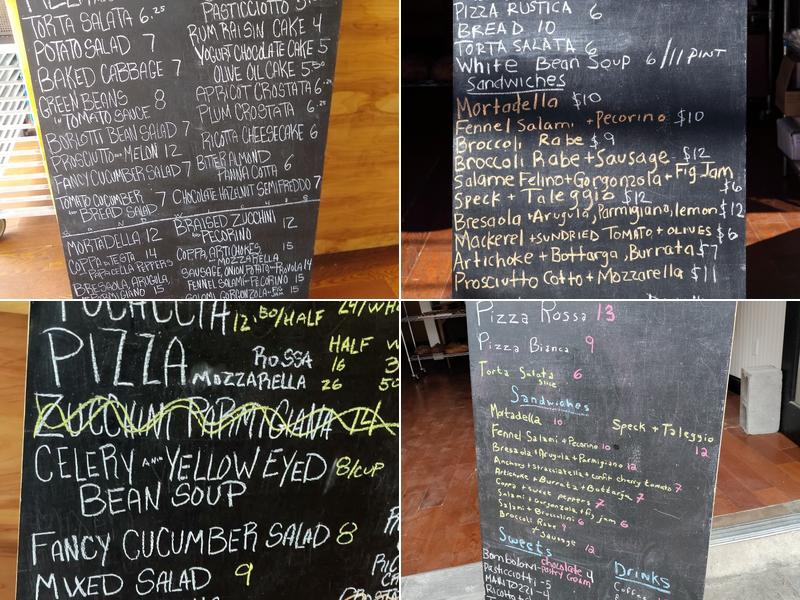 TORTA SALATA 6.25
POTATO SALAD 7
BAKED CABBAGE 7
GREEN BEANS 8
IN TOMATO SAUCE
BORLOTTI BEAN SALAD 7
PROSCIUTTO AND MELON 12
FANCY CUCUMBER SALAD 7
TOMATO CUCUMBER
BREAD SALAD 7
PASTICCIOTTO
RUM RAISIN CAKE 4
YOGURT CHOCOLATE CAKE 5
OLIVE OIL CAKE 5.50
APRICOT CROSTATA 6.25
PLUM CROSTATA 6.25
RICOTTA CHEESECAKE 6
BITTER ALMOND
PANNA COTTA 6
CHOCOLATE HAZELNUT SEMIFREDDO 7
MORTADELLA 12
COPPA DI TESTA 14
PEPPERS
BRESAOLA, ARUGULA,
PARMIGIANO 15
BRAISED ZUCCHINI
PECORINO 12
COPPA, ARTICHOKES
MOZZARELLA 15
SAUSAGE, ONION, POTATO, PROVOLA 14
FENNEL SALAMI, PECORINO 15
SALAMI, GORGONZOLA,
PIZZA RUSTICA 6
BREAD 10
TORTA SALATA 6
White Bean Soup 6/11 PINT
Sandwiches
Mortadella $10
Fennel Salami +Pecorino $10
Broccoli Rabe $9
Broccoli Rabe + Sausage $12
Salame Felino+Gorgonzola+Fig Jam
$6
Speck + Taleggio $12
Bresaola +Arugula, Parmigiano, lemon $12
Mackerel +SUNDRIED TOMATO + OLIVES $6
Artichoke + Bottarga, Burrata $7
Prosciutto Cotto + Mozzarella $11
FOCACCIA 12.50/HALF
PIZZA
HALF
ROSSA 16
MOZZARELLA 26
ZUCCHINI PARMIGIANA 14
CELERY AND YELLOW EYED 8/CUP
BEAN SOUP
FANCY CUCUMBER SALAD 8
MIXED SALAD 9
Pizza Rossa 13
Pizza Bianca 9
Torta Salata 6
slice
Sandwiches
Mortadella 10
Speck + Taleggio
12
Fennel Salami + Pecorino 10
Bresaola +Arugula + Parmigiano 12
Anchovy + Stracciatella + confit cherry tomato 7
Artichoke + Burrata + Bottarga 7
Coppa + sweet peppers 7
Salami + Gorgonzola + fig jam 6
Salami + Broccolini 6
Broccoli Rabe 9
+ Sausage 12
Sweets
Bomboloni - chocolate 4
pastry cream
Pasticciotti - 5
MARITOZZI - 4
Drinks
Coffee